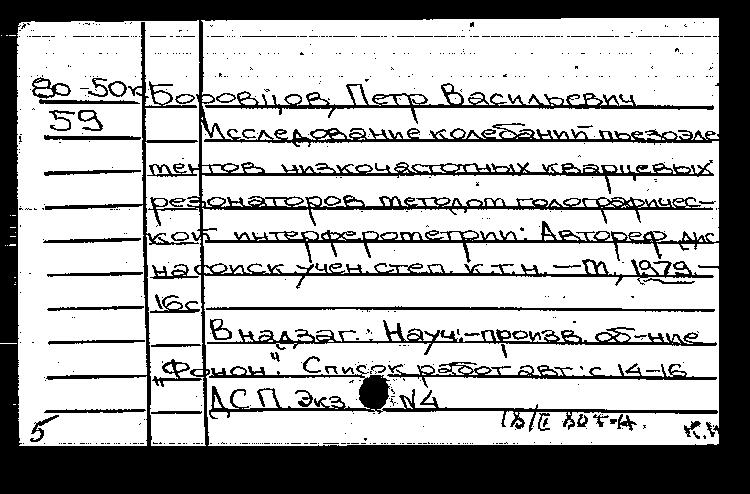 80-50к Боровцов, Петр Васильевич
59 Исследование колебаний пьезоэле
ментов низкочастотных кварцевых
резонаторов методом голографичес-
кой интерферометрии: Автореф. дис
на соиск. учен. степ. к.т.н. — М., 1979. —
16с
В надзаг.: Науч.-произв. об-ние
„Фонон". Список работ авт.: с. 14-16
ДСП. Экз. №4
5